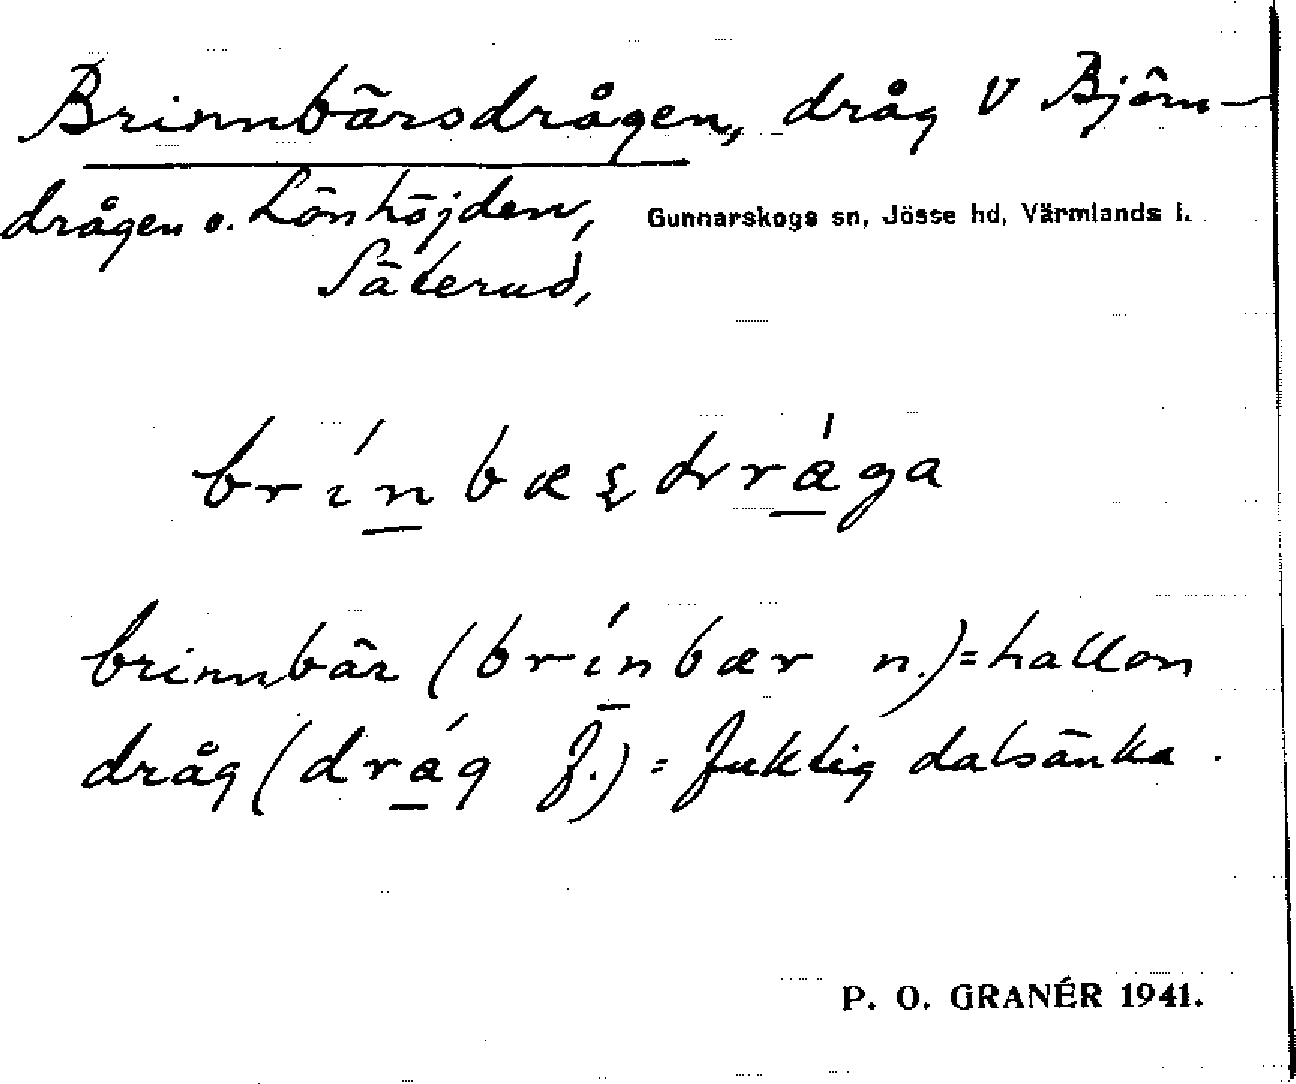 Brinnbärsdrågen, dråg V Björn-
drågen o. Lönhöjden, Gunnarskogs sn, Jösse hd, Värmlands l.
Säterud,
brínbæʂdrága
brinnbär (brínbær n.)=hallon
dråg (drág f.) = fuktig dalsänka.
P. O. GRANÉR 1941.